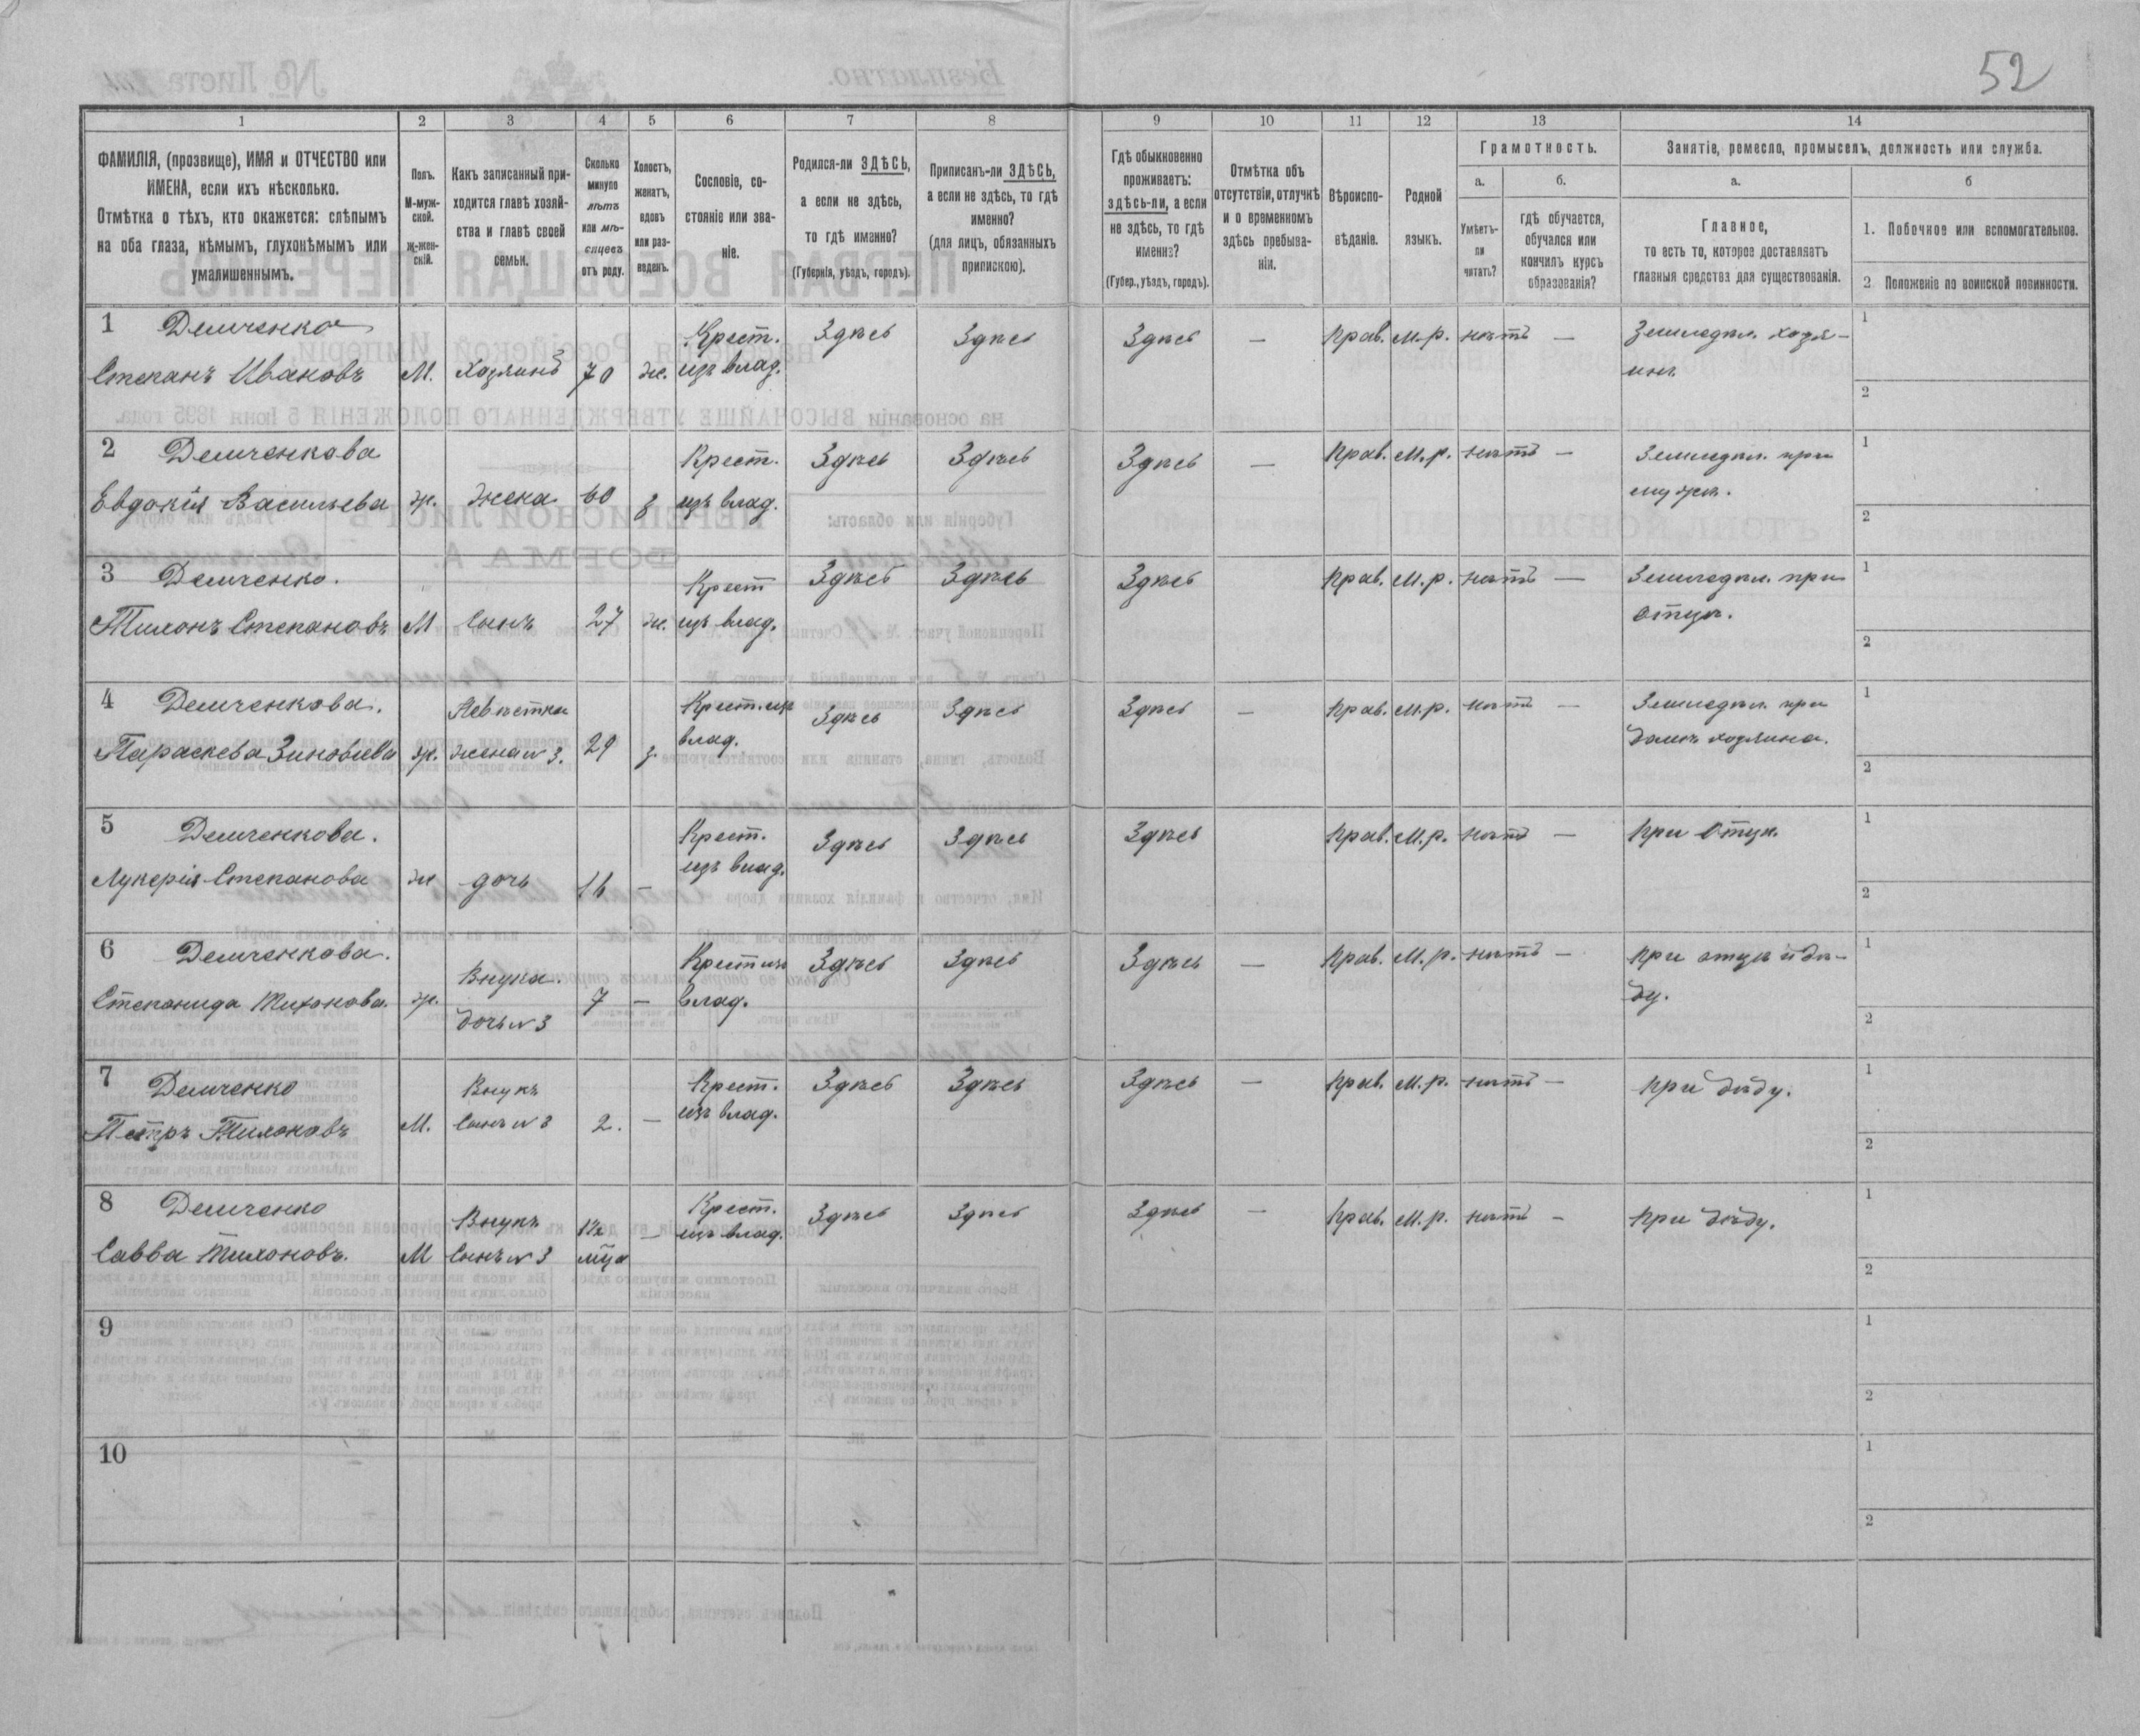 52
1 2 3 4 5 6 7 8 9 10 11 12 13 14
ФАМИЛІЯ, (прозвище), ИМЯ и ОТЧЕСТВО или
ИМЕНА, если ихъ нѣсколько.
Отмѣтка о тѣхъ, кто окажется: слѣпымъ
на оба глаза, нѣмымъ, глухонѣмымъ или
умалишеннымъ.
Полъ.
М-муж-
ской.
Ж-жен-
скій.
Какъ записанный при-
ходится главѣ хозяй-
ства и главѣ своей
семьи.
Сколько
минуло
лѣтъ
или мѣ-
сяцевъ
отъ роду.
Холостъ,
женатъ,
вдовъ
или раз-
веденъ.
Сословіе, со-
стояніе или зва-
ніе.
Родился-ли ЗДѢСЬ,
а если не здѣсь,
то гдѣ именно?
(Губернія, уѣздъ, городъ).
Приписанъ-ли ЗДѢСЬ,
а если не здѣсь, то гдѣ
именно?
(для лицъ, обязанныхъ
припискою).
Гдѣ обыкновенно
проживаетъ:
здѣсь-ли, а если
не здѣсь, то гдѣ
именно?
(Губер., уѣздъ, городъ).
Отмѣтка объ
отсутствіи, отлучкѣ
и о временномъ
здѣсь пребыва-
ніи.
Вѣроиспо-
вѣданіе.
Родной
языкъ.
Грамотность.
а.
Умѣетъ-
ли
читать?
б.
гдѣ обучается,
обучался или
кончилъ курсъ
образованія?
Занятіе, ремесло, промыселъ, должность или служба.
а.
Главное,
то есть то, которое доставляетъ
главныя средства для существованія.
б
1. Побочное или вспомогательное.
2 Положеніе по воинской повинности.
1 Демченко
Степанъ Ивановъ М. Хозяинъ 70 ж. Крест. изъ влад. Здѣсь Здѣсь Здѣсь — Прав. М.р. нѣтъ — Земледѣл. хозя-
инъ
1
2
2 Демченкова
Евдокія Васильева ж. жена 60 з Крест. изъ влад. Здѣсь Здѣсь Здѣсь — Прав. М.р. нѣтъ — Земледѣл. при
мужѣ.
1
2
3 Демченко.
Тихонъ Степановъ М Сынъ 27 ж. Крест изъ влад. Здѣсь Здѣсь Здѣсь Прав. М.р. нѣтъ — Земледѣл. при
отцѣ.
1
2
4 Демченкова.
Параскева Зиновіева ж. Невѣстка жена № 3. 29 з. Крест. изъ влад. Здѣсь Здѣсь Здѣсь — Прав. М.р. нѣтъ — Земледѣл. при
домѣ хозяина.
1
2
5 Демченкова.
Лукерія Степанова ж дочь 16 — Крест. изъ влад. Здѣсь Здѣсь Здѣсь Прав. М.р. нѣтъ — При Отцѣ.
1
2
6 Демченкова.
Степанида Тихонова. ж. Внука. дочь № 3 7 — Крест изъ влад. Здѣсь Здѣсь Здѣсь — Прав. М.р. нѣтъ — При отцѣ и дѣ-
ду.
1
2
7 Демченко
Петръ Тихоновъ М. Внукъ Сынъ № 3 2. — Крест. изъ влад. Здѣсь Здѣсь Здѣсь — Прав. М.р. нѣтъ — При дѣду.
1
2
8 Демченко
Савва Тихоновъ. М Внукъ Сынъ № 3 — Крест. изъ влад. Здѣсь Здѣсь Здѣсь — Прав. М.р. нѣтъ — При дѣду.
1
2
9
1
2
10
1
2